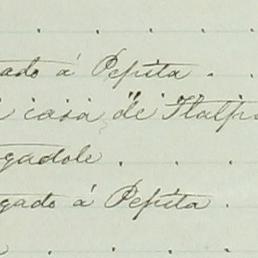 ado á Pepita .
casa de Tlalpa
gadole . . .
gado á Pepita .